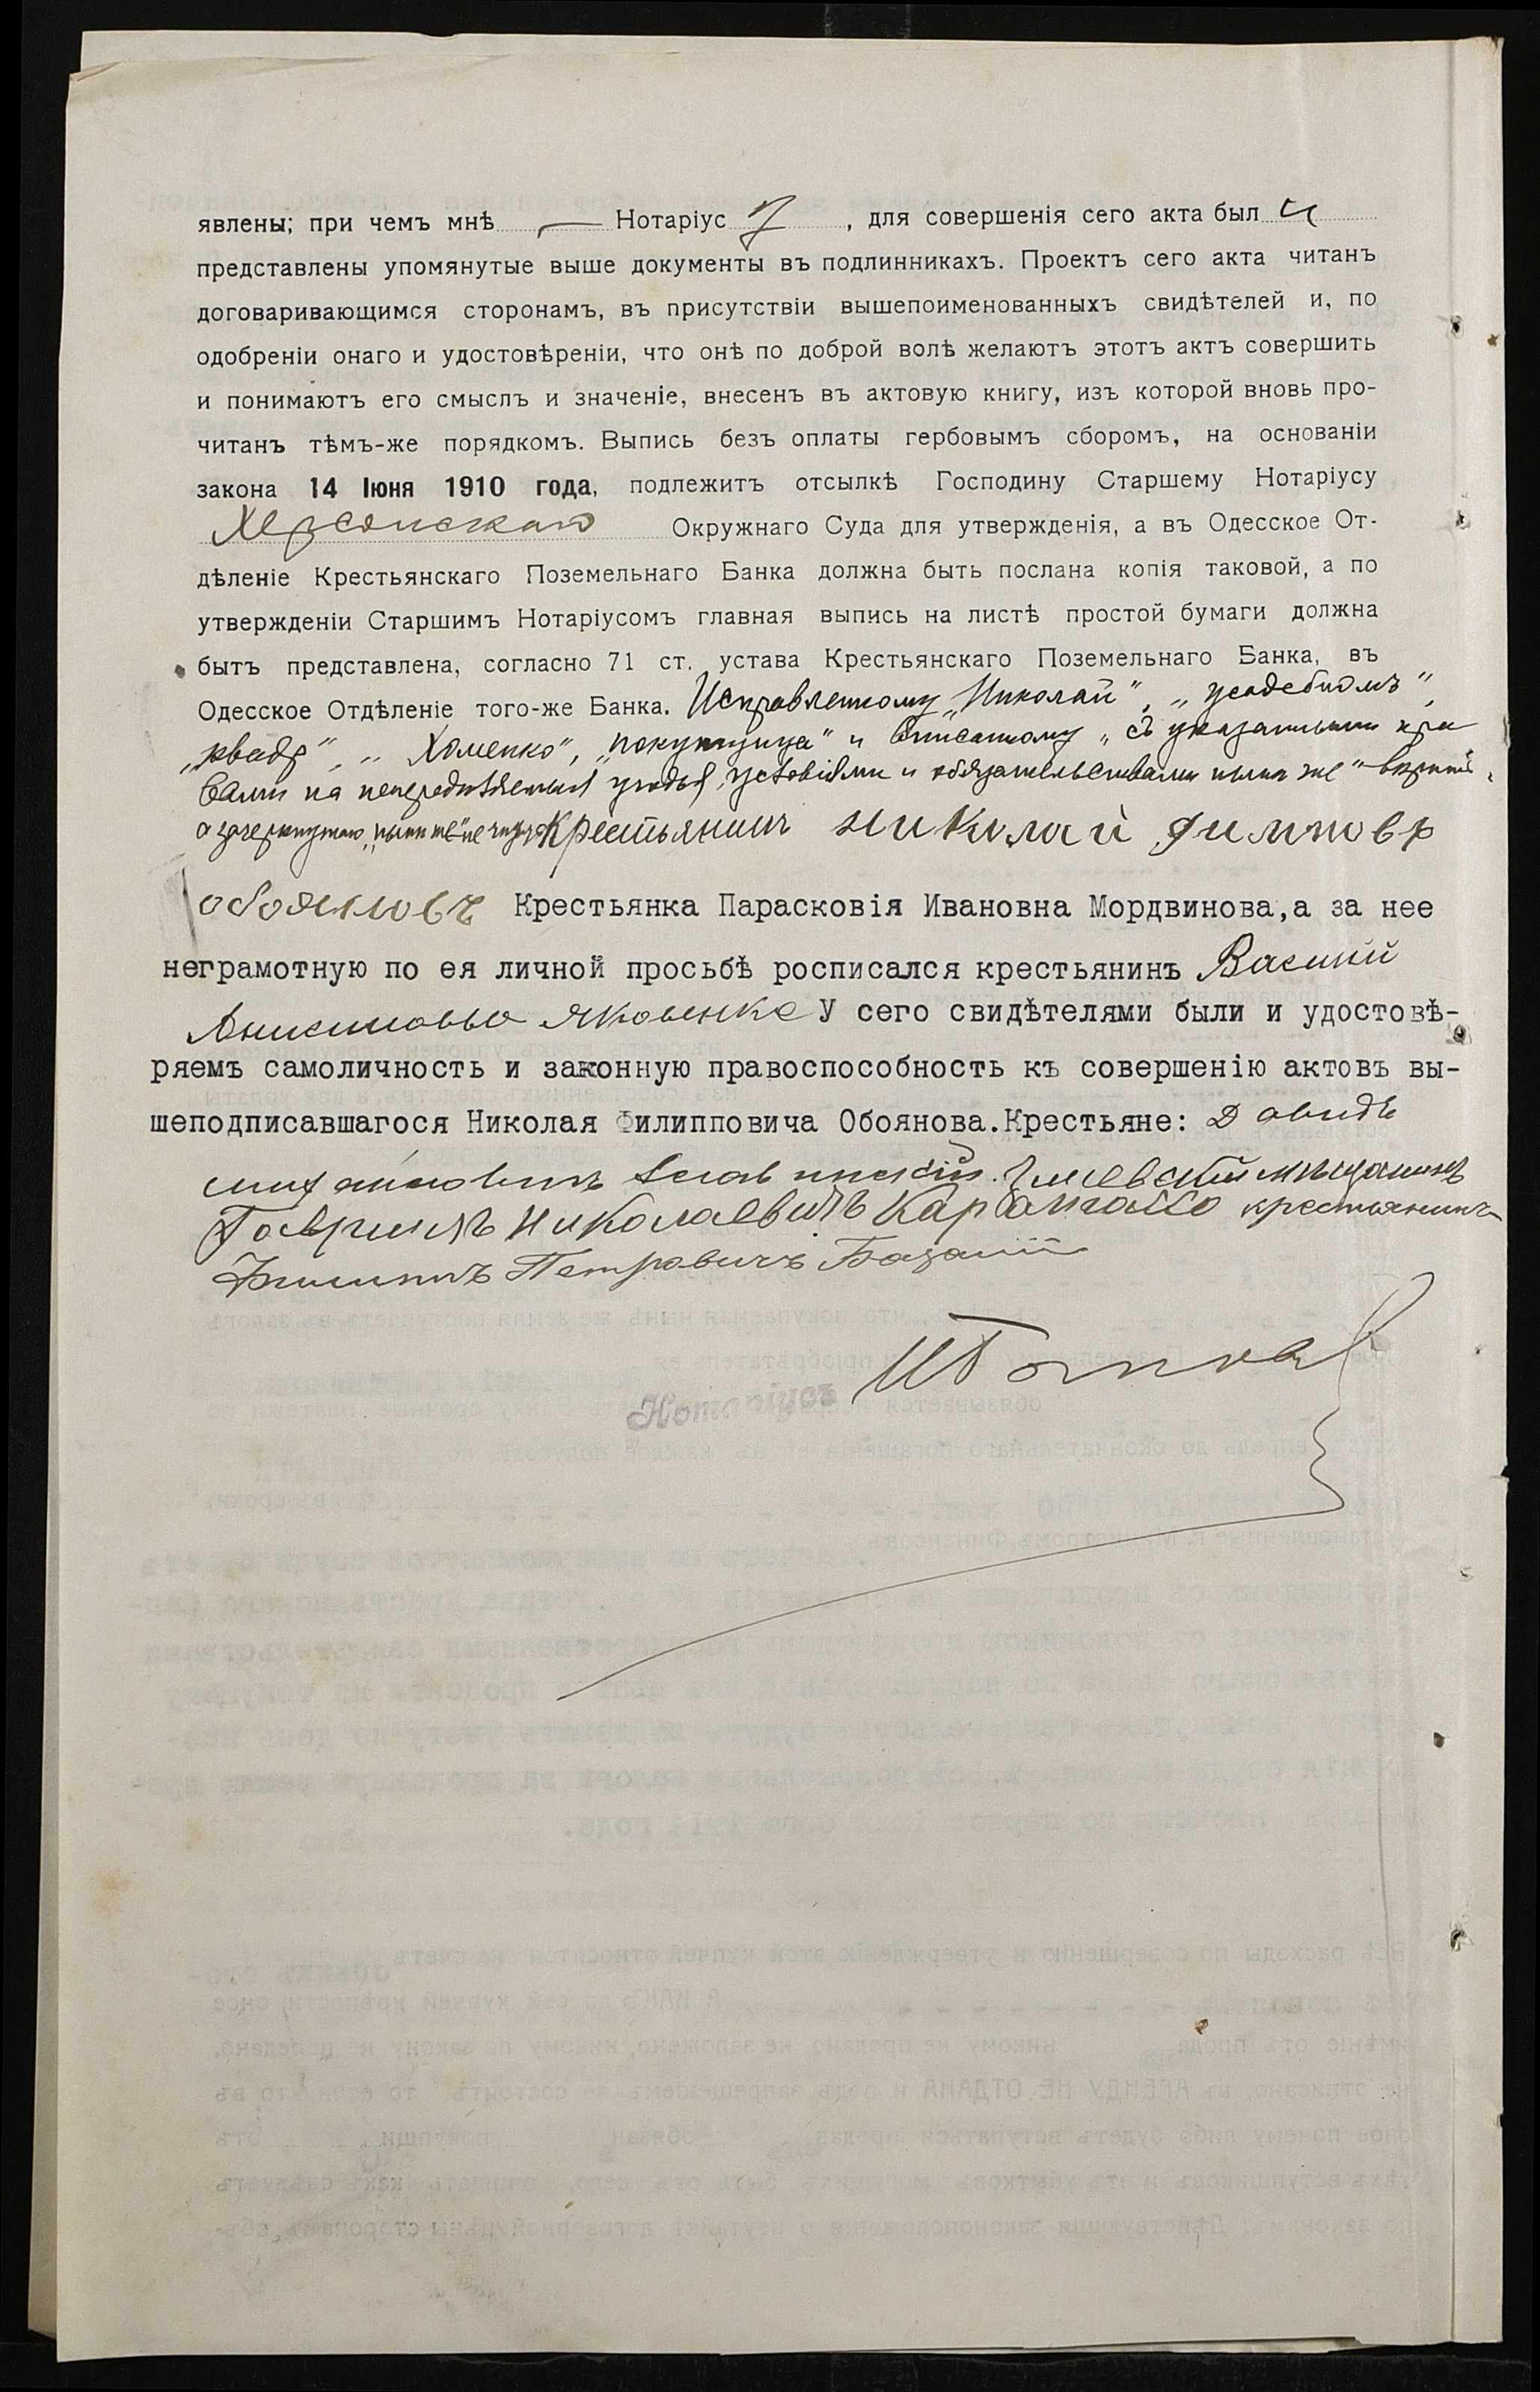 явлены; при чемъ мнѣ — Нотаріусу, для совершенія сего акта были
представлены упомянутые выше документы въ подлинникахъ. Проектъ сего акта читанъ
договаривающимся сторонамъ, въ присутствіи вышепоименованныхъ свидѣтелей и, по
одобреніи онаго и удостовѣреніи, что онѣ по доброй волѣ желаютъ этотъ актъ совершить
и понимаютъ его смыслъ и значеніе, внесенъ въ актовую книгу, изъ которой вновь про-
читанъ тѣмъ-же порядкомъ. Выпись безъ оплаты гербовымъ сборомъ, на основаніи
закона 14 Іюня 1910 года, подлежитъ отсылкѣ Господину Старшему Нотаріусу
Херсонскаго Окружнаго Суда для утвержденія, а въ Одесское От-
дѣленіе Крестьянскаго Поземельнаго Банка должна быть послана копія таковой, а по
утвержденіи Старшимъ Нотаріусомъ главная выпись на листѣ простой бумаги должна
бытъ представлена, согласно 71 ст. устава Крестьянскаго Поземельнаго Банка, въ
Одесское Отдѣленіе того-же Банка. Исправленному „Николай", „усадебномъ",
„квадр", „Хоменко", „покупщица" и вписанному „съ указанными пра
вами на нераздѣленныя угодья, условіями и обязательствами ныне же" вѣрить,
а зачеркнутаго „ныне же" не читать Крестьянинъ Николай Филиповъ
Обояновъ Крестьянка Парасковія Ивановна Мордвинова,а за нее
неграмотную по ея личной просьбѣ росписался крестьянинъ Василий
Анисимовъ Яковенко У сего свидѣтелями были и удостовѣ-
ряемъ самоличность и законную правоспособность къ совершенію актовъ вы-
шеподписавшагося Николая Филипповича Обоянова.Крестьяне: Давидъ
мещанинъ
Гавриилъ Николаевичъ крестьянинъ
Филиппъ Петровичъ Базалій
Нотаріусъ